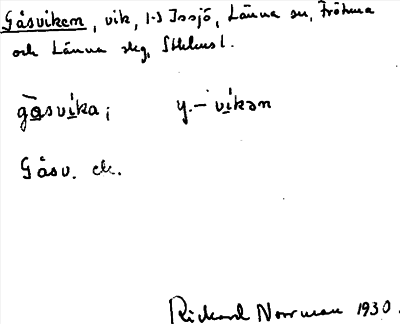 Gåsviken, vik, 1-3 Issjö, Länna sn, Fröhma
och Länna skg, Sthlms l.
gåsvika; y. – vikən
Gåsv. ek.
Rickard Norrman 1930.